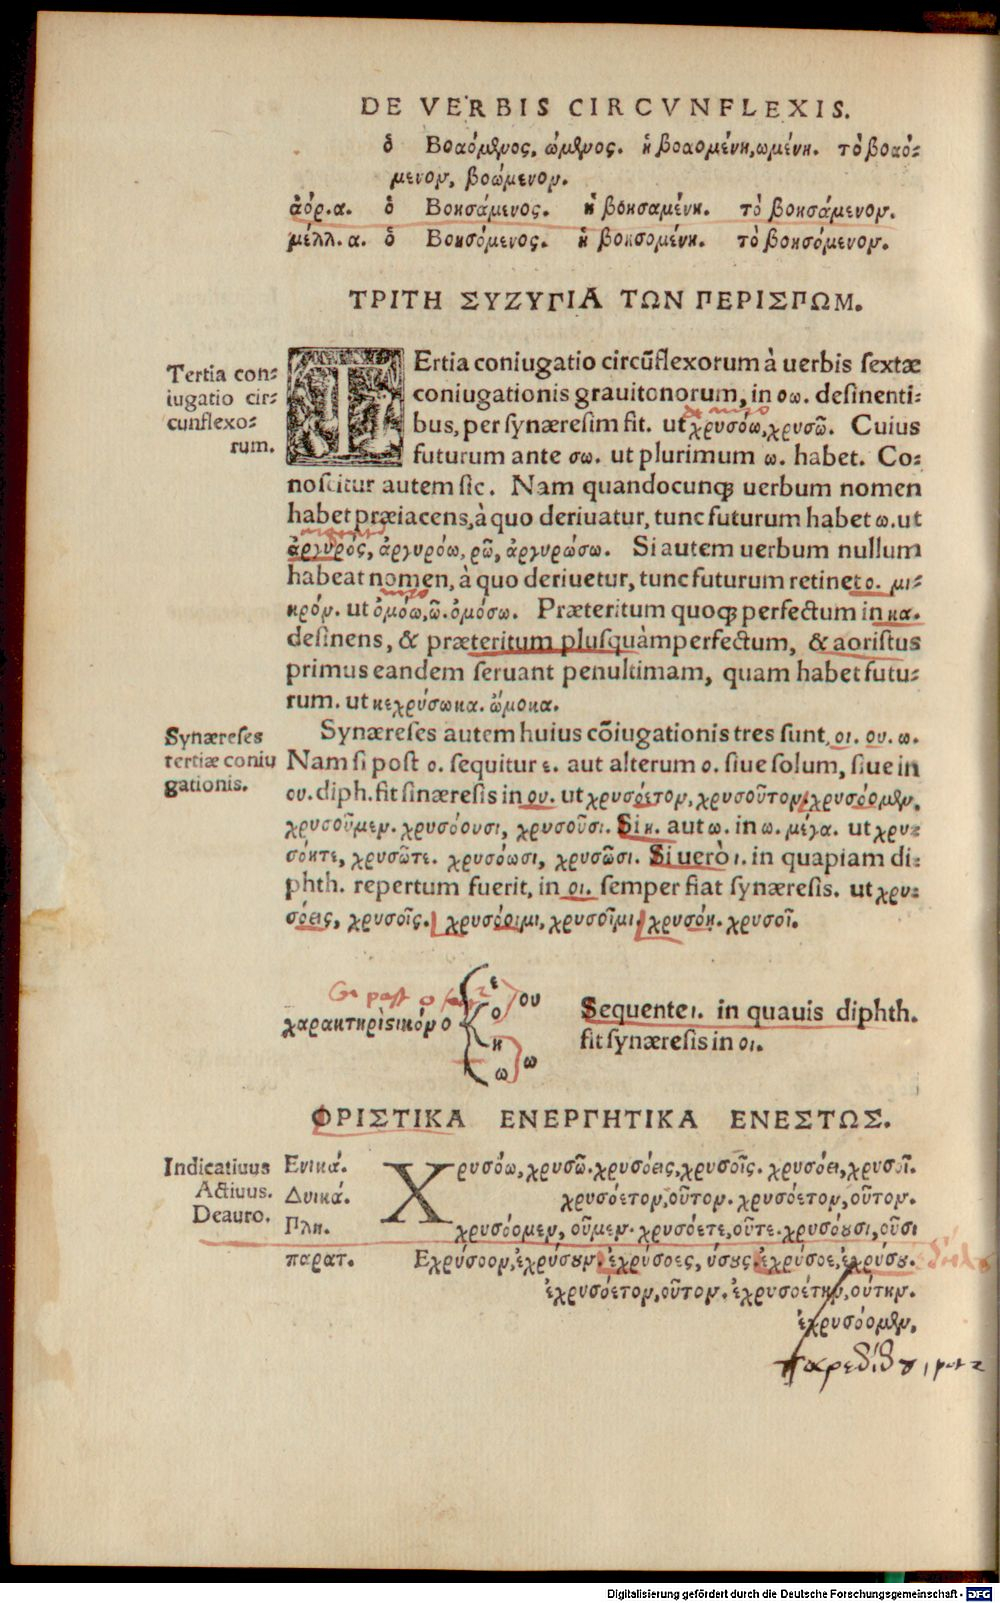 DE VERBIS CIRCVNFLEXIS.
ὁ Βοαόμενος, ώμενος. ἡ βοαομένη, ωμένη. τὸ βοαό=
μενον, βοώμενον.
ἀόρ. α. ὁ Βοησάμενος. ἡ βοησαμένη. τὸ βοησάμενον.
μέλλ. α. ὁ Βοησόμενος. ἡ βοησομένη. τὸ βοησόμενον.
ΤΡΙΤΗ ΣΥΖΥΓΙΑ ΤΩΝ ΠΕΡΙΣΠΩΜ.
Tertia con=
iugatio cir=
cunflexo=
rum.
TErtia coniugatio circũflexorum à uerbis ſextæ
coniugationis grauitonorum, in οω. deſinenti=
bus, per ſynæreſim fit. ut χρυσόω, χρυσῶ. Cuius
futurum ante σω. ut plurimum ω. habet. Co=
noſcitur autem ſic. Nam quandocunq; uerbum nomen
habet præiacens, à quo deriuatur, tunc futurum habet ω. ut
ἀργυρός, ἀργυρόω, ρῶ, ἀργυρώσω. Si autem uerbum nullum
habeat nomen, à quo deriuetur, tunc futurum retinet ο. μι=
κρόν. ut ὀμόω, ῶ. ὀμόσω. Præteritum quoq; perfectum in κα.
deſinens, & præteritum pluſquàmperfectum, & aoriſtus
primus eandem ſeruant penultimam, quam habet futu=
rum. ut κεχρύσωκα. ὤμοκα.
Synæreſes
tertiæ coniu
gationis.
Synæreſes autem huius cõiugationis tres ſunt, οι. ου. ω.
Nam ſi poſt ο. ſequitur ε. aut alterum ο. ſiue ſolum, ſiue in
ου. diph. fit ſinæreſis in ου. ut χρυσόετον, χρυσοῦτον, χρυσόομεν,
χρυσοῦμεν. χρυσόουσι, χρυσοῦσι. Si η. aut ω. in ω. μέγα. ut χρυ=
σόητε, χρυσῶτε. χρυσόωσι, χρυσῶσι. Si uerò ι. in quapiam di=
phth. repertum fuerit, in οι. ſemper fiat ſynæreſis. ut χρυ=
σόεις, χρυσοῖς. χρυσόοιμι, χρυσοῖμι. χρυσόῃ. χρυσοῖ.
χαρακτηριστικόν ο
ε
ο
ου
η
ω
ω
Sequente ι. in quauis diphth.
fit ſynæreſis in οι.
ΟΡΙΣΤΙΚΑ ΕΝΕΡΓΗΤΙΚΑ ΕΝΕΣΤΩΣ.
Indicatiuus
Actiuus.
Deauro.
Ενικά. Χρυσόω, χρυσῶ. χρυσόεις, χρυσοῖς. χρυσόει, χρυσοῖ.
Δυικά. χρυσόετον, οῦτον. χρυσόετον, οῦτον.
Πλη. χρυσόομεν, οῦμεν. χρυσόετε, οῦτε. χρυσόουσι, οῦσι
παρατ. Εχρύσοον, ἐχρύσουν. ἐχρύσοες, ύσους. ἐχρύσοε, ἐχρύσου.
ἐχρυσόετον, οῦτον. ἐχρυσοέτην, ούτην.
ἐχρυσόομεν,
παρεδίδου,
Digitalisierung gefördert durch die Deutsche Forschungsgemeinschaft - DFG